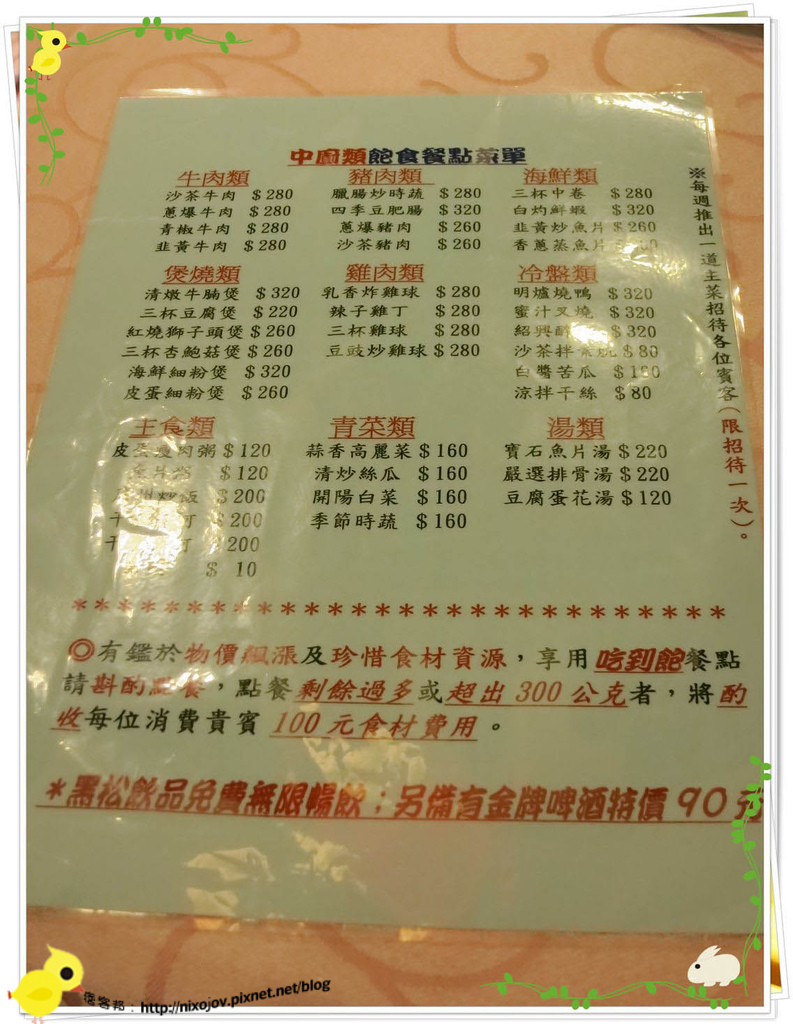 中廚類飽食餐點菜單
牛肉類
沙茶牛肉 $280
蔥爆牛肉 $280
青椒牛肉 $280
韭黃牛肉 $280
豬肉類
臘腸炒時蔬 $280
四季豆肥腸 $320
蔥爆豬肉 $260
沙茶豬肉 $260
海鮮類
三杯中卷 $280
白灼鮮蝦 $320
韭黃炒魚片 $260
香蔥蒸魚片
煲燒類
清燉牛腩煲 $320
三杯豆腐煲 $220
紅燒獅子頭煲 $260
三杯杏鮑菇煲 $260
海鮮細粉煲 $320
皮蛋細粉煲 $260
雞肉類
乳香炸雞球 $280
辣子雞丁 $280
三杯雞球 $280
豆豉炒雞球 $280
冷盤類
明爐燒鴨 $320
蜜汁叉燒 $320
紹興醉 $320
沙茶拌 $80
白醬苦瓜
涼拌干絲 $80
主食類
皮蛋瘦肉粥 $120
魚片粥 $120
州炒飯 $200
干 $200
干 $200
$ 10
青菜類
蒜香高麗菜 $160
清炒絲瓜 $160
開陽白菜 $160
季節時蔬 $160
湯類
寶石魚片湯 $220
嚴選排骨湯 $220
豆腐蛋花湯 $120
※每週推出一道主菜招待各位賓客(限招待一次)。
************************
◎有鑑於物價飆漲及珍惜食材資源，享用吃到飽餐點
請斟酌點餐，點餐剩餘過多或超出 300 公克者，將酌
收每位消費貴賓 100 元食材費用。
*黑松飲品免費無限暢飲；另備有金牌啤酒特價 90
痞客邦：http://nixojov.pixnet.net/blog